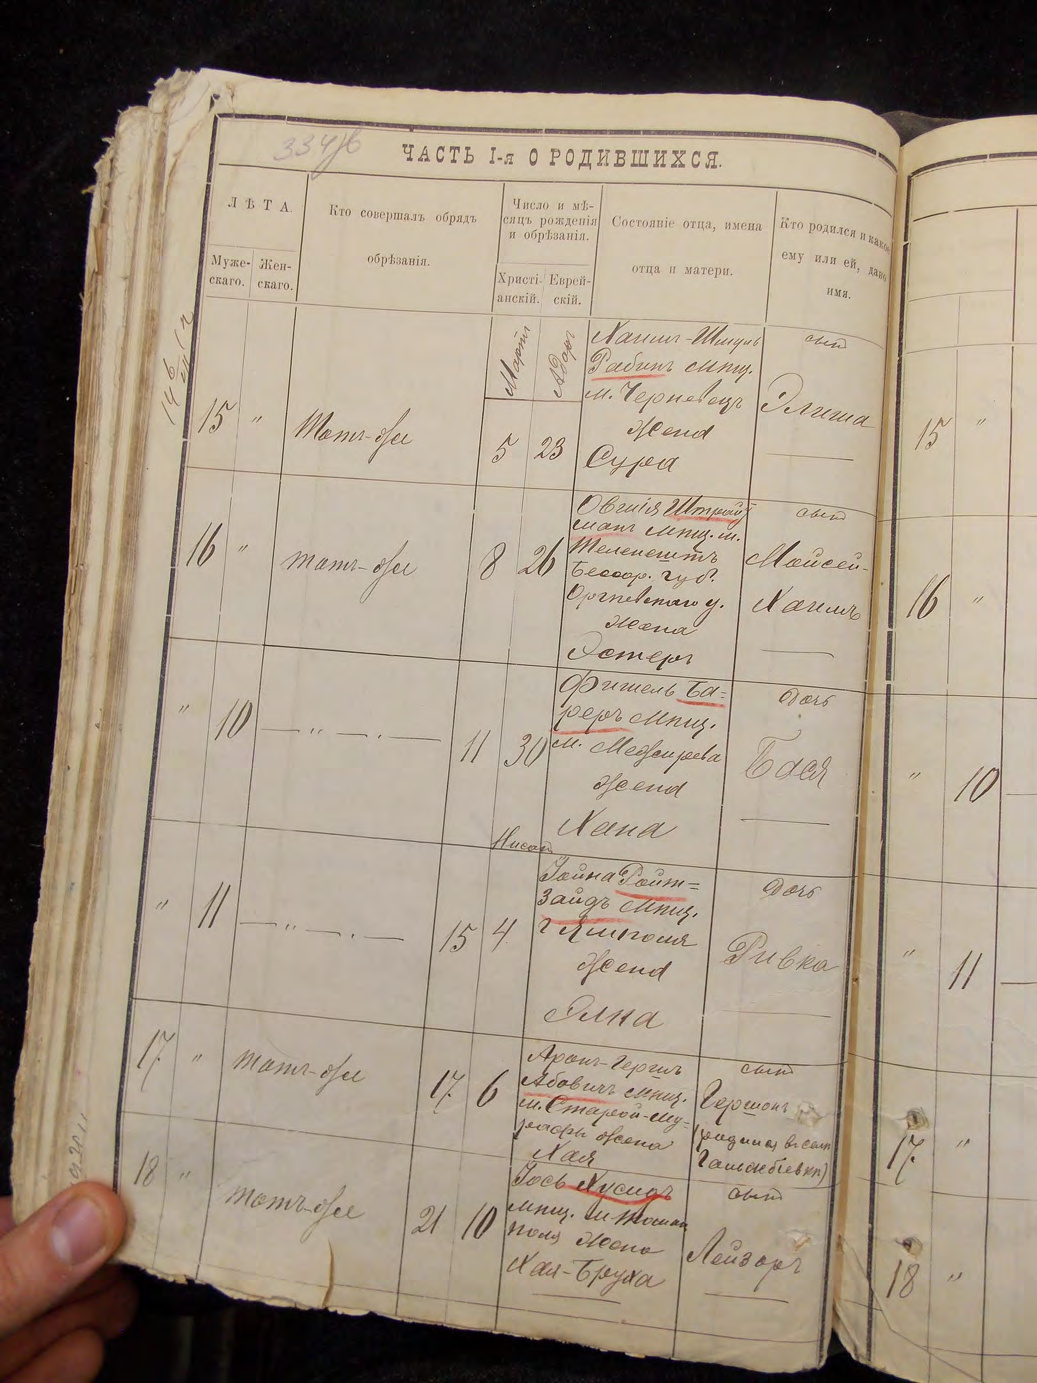 334
ЧАСТЬ I-я О РОДИВШИХСЯ.
ЛѢТА.
Муже-
скаго.
Жен-
скаго.
Кто совершалъ обрядъ
обрѣзанія.
Число и мѣ-
сяцъ рожденія
и обрѣзанія.
Христі-
анскій.
Еврей-
скій.
Состояніе отца, имена
отца и матери.
Кто родился и какое
ему или ей, дано
имя.
15
"
Тотъ-же
Мартъ
5
Адаръ
23
Хаимъ-Шмуль
Рабинъ мѣщ.
м. Черневецъ
жена
Сура
сынъ
Элиша
15
"
16
"
тотъ-же
8
26
Овшія Штрой
манъ мѣщ. м.
Теленештъ
Бессар. губ.
Оргѣевскаго у.
жена
Эстеръ
сынъ
Мойсей-
Хаимъ
16
"
"
10
— " — . —
11
30
Фишель Ба-
реръ мѣщ.
м. Межирева
жена
Хана
дочь
Бася
"
10
"
11
— " — . —
15
Нисанъ
4
Іойна Ройт=
зайдъ мѣщ.
г Ямполя
жена
Элка
дочь
Ривка
"
11
17
"
тотъ-же
17
6
Аронъ-Гершъ
Абовичъ мѣщ.
м. Старой-Му-
рафы жена
Хая
сынъ
Гершонъ
17
"
18
"
тотъ-же
21
10
Іось Хусидъ
мѣщ. м. Томаш
поля жена
Хая-Бруха
сынъ
Лейзоръ
18
"